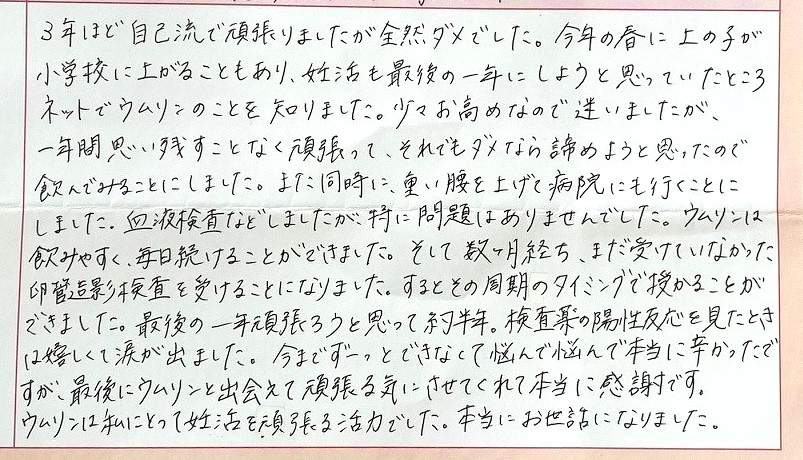 3年ほど自己流で頑張りましたが全然ダメでした。今年の春に上の子が
小学校に上がることもあり、妊活も最後の一年にしようと思っていたところ
ネットでウムリンのことを知りました。少々お高めなので迷いましたが、
一年間思い残すことなく頑張って、それでもダメなら諦めようと思ったので
飲んでみることにしました。また同時に、重い腰を上げて病院にも行くことに
しました。血液検査などしましたが、特に問題はありませんでした。ウムリンは
飲みやすく、毎日続けることができました。そして数ヶ月経ち、まだ受けていなかった
卵管造影検査を受けることになりました。するとその周期のタイミングで授かることが
できました。最後の一年頑張ろうと思って約半年。検査薬の陽性反応を見たとき
は嬉しくて涙が出ました。今までずーっとできなくて悩んで悩んで本当に辛かったで
すが、最後にウムリンと出会えて頑張る気にさせてくれて本当に感謝です。
ウムリンは私にとって妊活を頑張る活力でした。本当にお世話になりました。